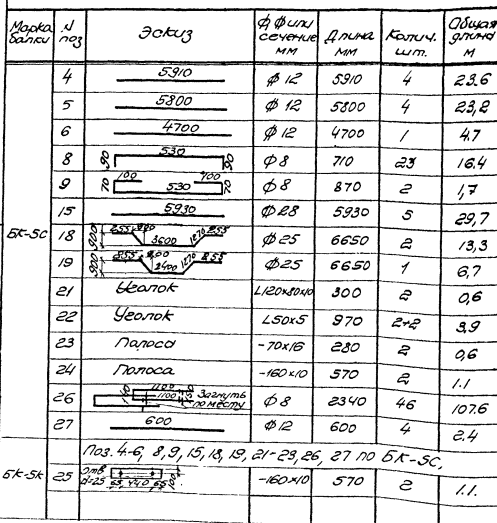 Марка балки № поз Эскиз ф, ф или сечение мм Длина мм Колич. шт. Общая длина м
БК-5с
4 5910 ф 12 5910 4 23.6
5 5800 ф 12 5800 4 23,2
6 4700 ф 12 4700 1 4.7
8 90 530 90 ф 8 710 23 16.4
9 70 100 530 100 70 ф 8 870 2 1,7
15 5930 ф 28 5930 5 29,7
18 900 255 3600 1270 255 ф 25 6650 2 13,3
19 900 3400 1270 ф 25 6650 1 6,7
21 Уголок L120x80x10 300 2 0,6
22 Уголок L50x5 970 2+2 3,9
23 Полоса -70x16 280 2 0,6
24 Полоса -160x10 570 2 1.1
26 1100 1100 Загнуть по месту ф 8 2340 46 107.6
27 600 ф 12 600 4 2.4
БК-5к
Поз. 4-6, 8,9, 15, 18, 19, 21-23, 26, 27 по БК-5с,
25 отв d=25 65 440 65 100 -160x10 570 2 1.1.